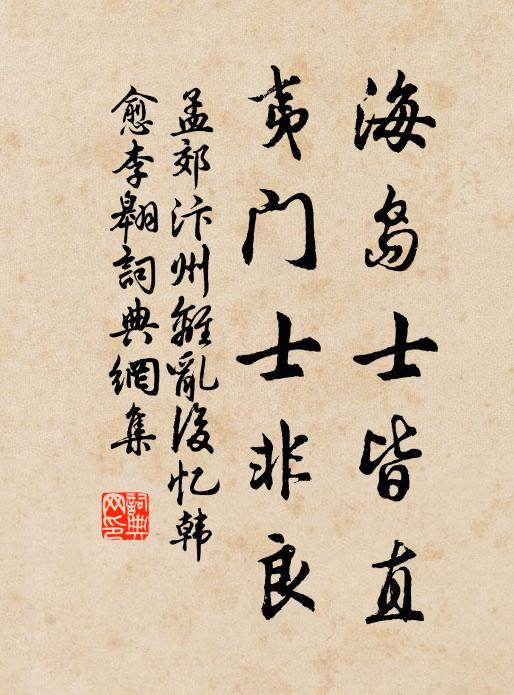 海岛士皆直
夷门士非良
孟郊汴州離亂後忆韩
愈李翱詞典網集
詞典
网印